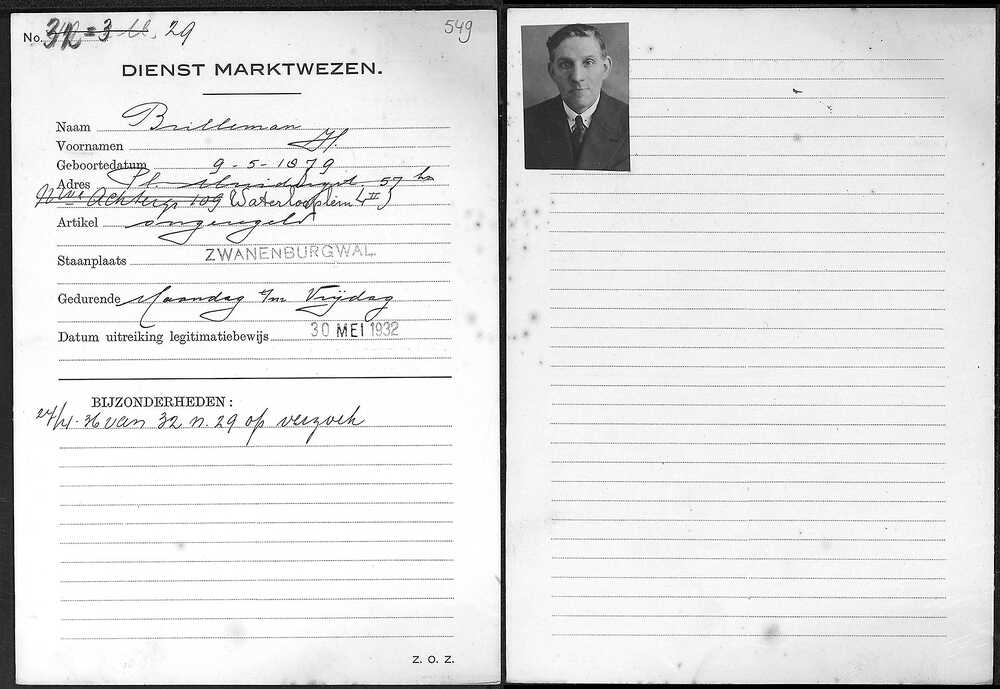 No. 29
549
DIENST MARKTWEZEN.
Naam Brilleman
Voornamen H.
Geboortedatum 9-5-1879
Adres Pl. Muidergrt. 57 hs
Nwe Achtergr 109 Waterlooplein
Artikel ongeregeld
Staanplaats ZWANENBURGWAL.
Gedurende Maandag t/m Vrijdag
Datum uitreiking legitimatiebewijs 30 MEI 1932
BIJZONDERHEDEN:
van 32 n. 29 op verzoek
Z. O. Z.